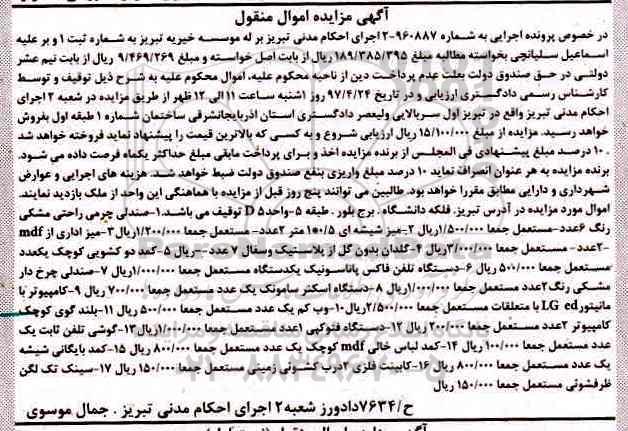 آگهی مزایده اموال منقول
در خصوص پرونده اجرایی به شماره ۹۶۰۸۸۷-۲ اجرای احکام مدنی تبریز بر له موسسه خیریه تبریز به شماره ثبت ۱ و بر علیه
اسماعیل سلیانچی بخواسته مطالبه مبلغ ۱۸۹/۳۸۵/۳۹۵ ریال از بابت اصل خواسته و مبلغ ۹/۴۶۹/۲۶۹ ریال از بابت نیم عشر
دولتی در حق صندوق دولت بعلت عدم پرداخت دین از ناحیه محکوم علیه، اموال محکوم علیه به شرح ذیل توقیف و توسط
کارشناس رسمی دادگستری ارزیابی و در تاریخ ۹۷/۴/۲۴ روز ۱شنبه ساعت ۱۱ الی ۱۲ ظهر از طریق مزایده در شعبه ۲ اجرای
احکام مدنی تبریز واقع در تبریز اول سربالایی ولیعصر دادگستری استان آذربایجانشرقی ساختمان شماره ۱ طبقه اول بفروش
خواهد رسید. مزایده از مبلغ ۱۵/۱۰۰/۰۰۰ ریال ارزیابی شروع و به کسی که بالاترین قیمت را پیشنهاد نماید فروخته خواهد شد
. ۱۰ درصد مبلغ پیشنهادی فی المجلس از برنده مزایده اخذ و برای پرداخت مابقی مبلغ حداکثر یکماه فرصت داده می شود.
برنده مزایده به هر عنوان انصراف نماید ۱۰ درصد مبلغ واریزی بنفع صندوق دولت ضبط خواهد شد. هزینه های اجرایی و عوارض
شهرداری و دارایی مطابق مقررا خواهد بود. طالبین می توانند پنج روز قبل از مزایده با هماهنگی این واحد از ملک بازدید نمایند.
اموال مورد مزایده در آدرس تبریز، فلکه دانشگاه . برج بلور . طبقه ۵ -واحد D ۵ توقیف می باشد.۱-صندلی چرمی راحتی مشکی
رنگ ۶عدد-مستعمل جمعا ۱/۵۰۰/۰۰۰ریال ۲-میز شیشه ای ۵*۱/۰ متر ۲عدد- مستعمل جمعا ۱/۲۰۰/۰۰۰ریال۳-میز اداری از mdf
-۲عدد- مستعمل جمعا ۳/۰۰۰/۰۰۰ریال ۴-گلدان بدون گل از پلاستیک وسفال ۷ عدد -- ریال ۵-کمد دو کشویی کوچک یکعدد
مستعمل جمعا ۵۰۰/۰۰۰ ریال ۶-دستگاه تلفن فاکس پاناسونیک یکدستگاه مستعمل جمعا ۱/۰۰۰/۰۰۰ریال ۷-صندلی چرخ دار
مشکی رنگ ۲عدد مستعمل جمعا ۱/۰۰۰/۰۰۰ریال ۸-دستگاه اسکنر سامونک یک عدد مستعمل جمعا ۷۰۰/۰۰۰ ریال ۹-کامپیوتر با
مانیتور LG ed با متعلقات مستعمل جمعا ۲/۵۰۰/۰۰۰ریال۱۰-وب کم یک عدد مستعمل جمعا ۵۰۰/۰۰۰ ریال ۱۱-بلند گوی کوچک
کامپیوتر ۲عدد مستعمل جمعا ۲۰۰/۰۰۰ ریال ۱۲-دستگاه فتوکپی ۱عدد مستعمل جمعا ۱/۰۰۰/۰۰۰ریال۱۳-گوشی تلفن ثابت یک
عدد مستعمل جمعا ۱۰۰/۰۰۰ ریال ۱۴-کمد لباس خالی mdf کوچک یک عدد مستعمل جمعا ۸۰۰/۰۰۰ ریال ۱۵-کمد بایگانی شیشه
یک عدد مستعمل جمعا ۸۰۰/۰۰۰ ریال ۱۶-کابینت فلزی ۲درب کشوئی زمینی مستعمل جمعا ۱۵۰/۰۰۰ ریال ۱۷-سینک تک لگن
ظرفشوئی مستعمل جمعا ۱۵۰/۰۰۰ ریال
ح/۷۶۳۴دادورز شعبه۲ اجرای احکام مدنی تبریز . جمال موسوی